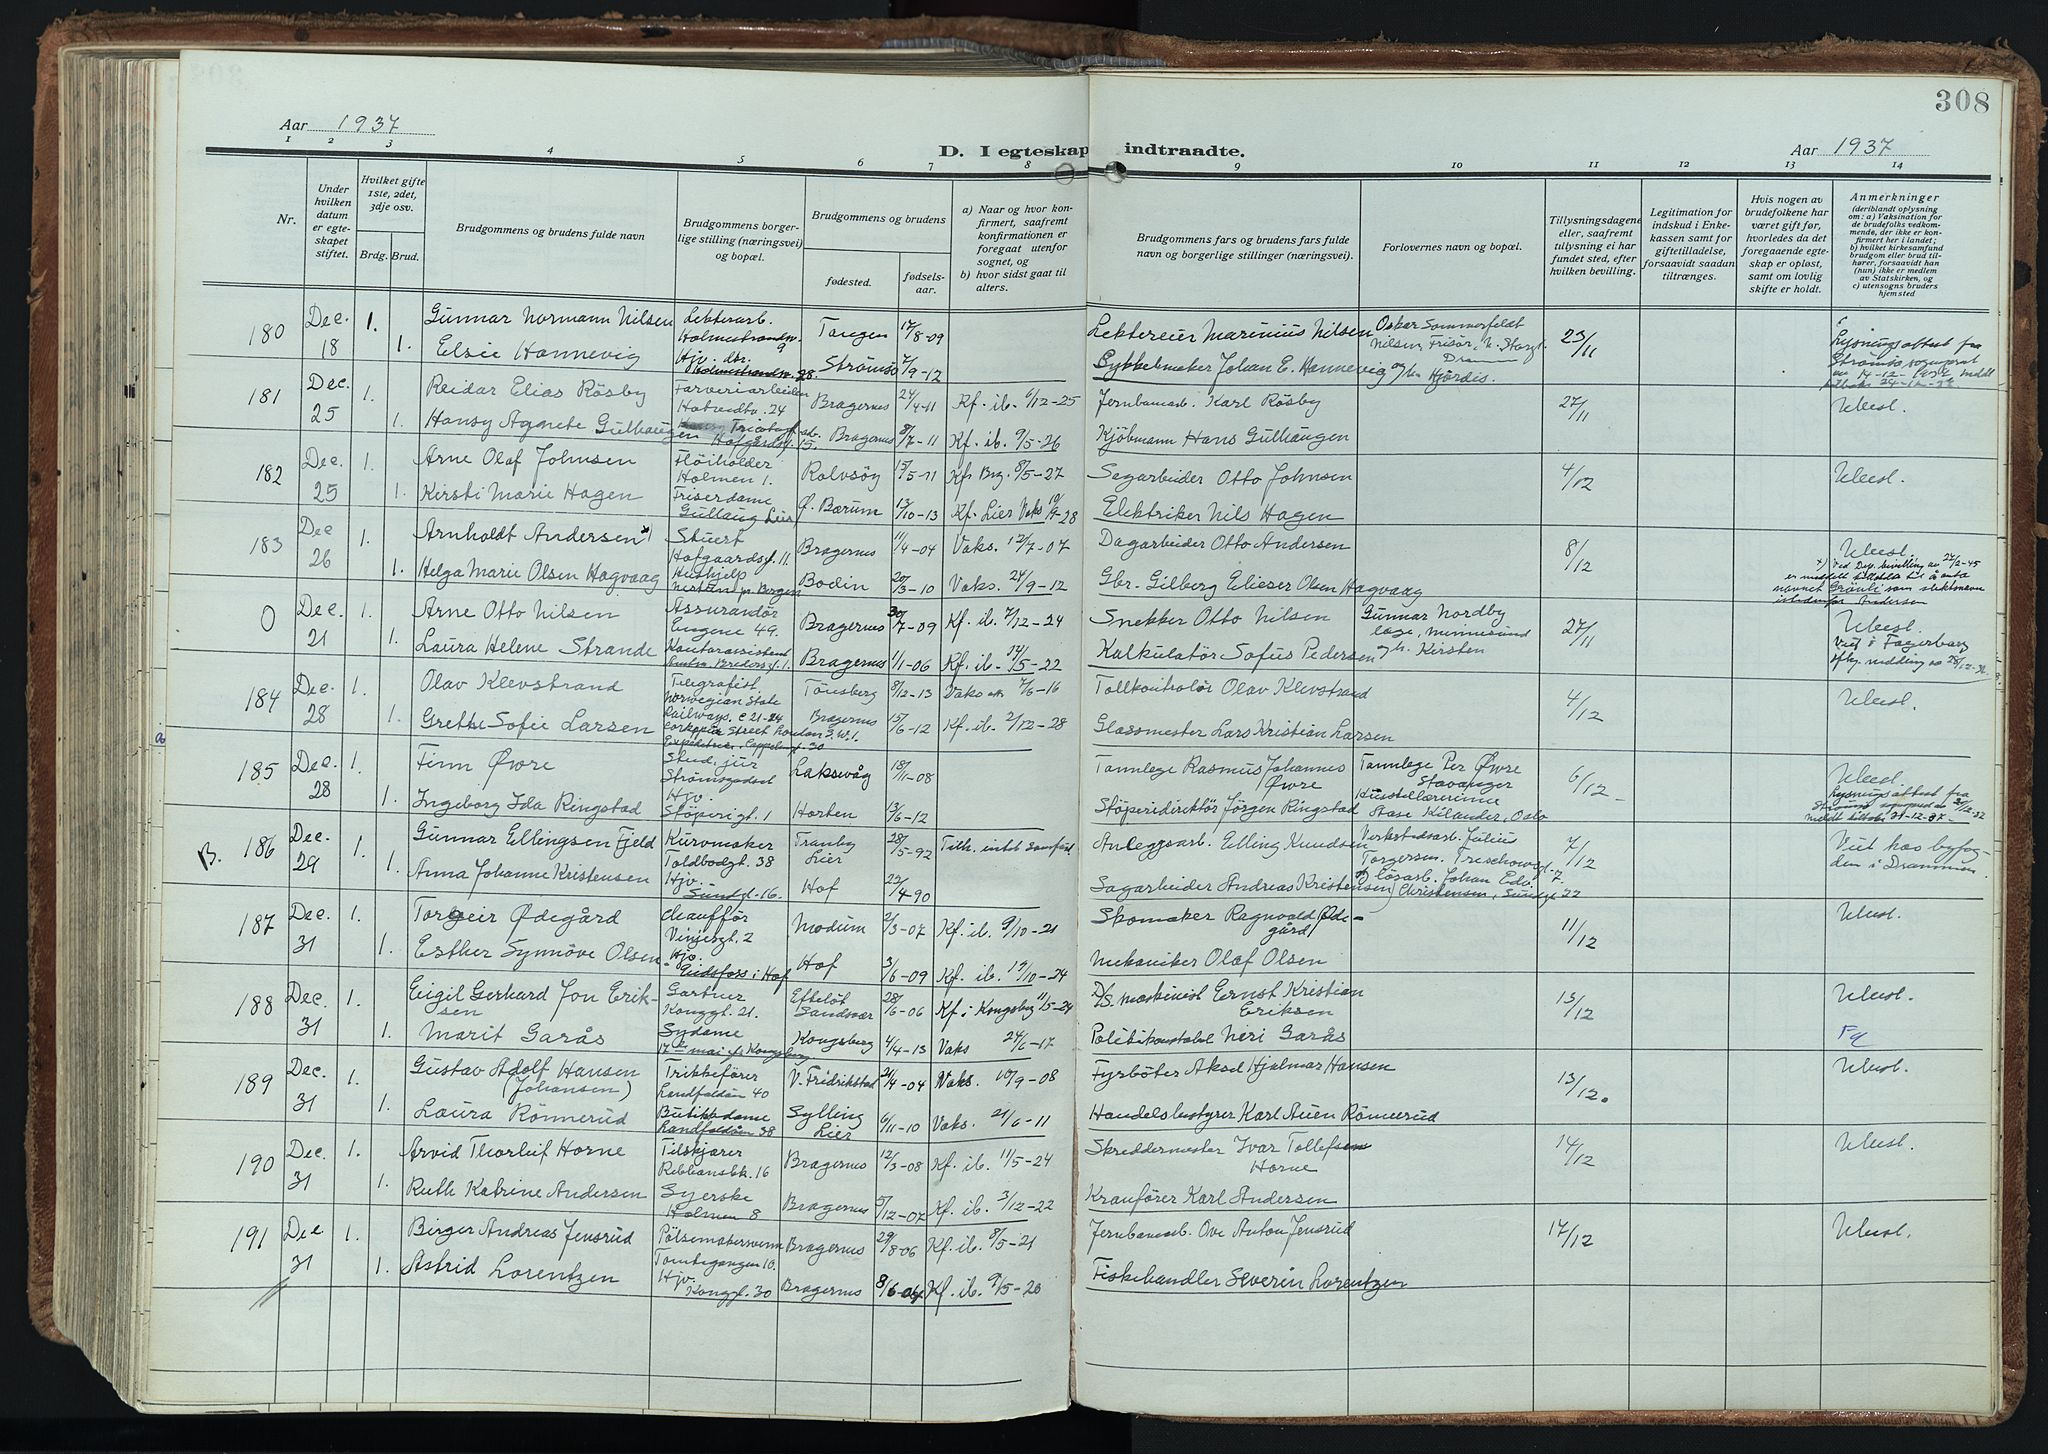 308
Aar 1937
D. I egteskap indtraadte.
Aar 1937
1 2 3 4 5 6 7 8 9 10 11 12 13 14
Nr.
Under hvilken datum er egteskapet stiftet.
Hvilket gifte 1ste, 2det, 3dje osv.
Brdg. Brud.
Brudgommens og brudens fulde navn
Brudgommens borgerlige stilling (næringsvei) og bopæl.
Brudgommens og brudens
fødested. fødselsaar.
a) Naar og hvor konfirmert, saafremt konfirmationen er foregaat utenfor sognet, og
b) hvor sidst gaat til alters.
Brudgommens fars og brudens fars fulde navn og borgerlige stillinger (næringsvei).
Forlovernes navn og bopæl.
Tillysningsdagene eller, saafremt tillysning ei har fundet sted, efter hvilken bevilling.
Legitimation for indskud i Enkekassen samt for giftetilladelse, forsaavidt saadan tiltrænges.
Hvis nogen av brudefolkene har været gift før, hvorledes da det foregaaende egteskap er opløst, samt om lovlig skifte er holdt.
Anmerkninger
(deriblandt oplysning om: a) Vaksination for de brudefolks vedkommende, der ikke er konfirmert her i landet; b) hvilket kirkesamfund brudgom eller brud tilhører, forsaavidt han (hun) ikke er medlem av Statskirken, og c) utensogns bruders hjemsted
180 Dec. 18 1. Gunnar Normann Nilsen Lekterarb. Holmestrandsv. 9 Tangen 17/8-09 Lektereier Marinius Nilsen Oskar Sommerfeldt Nilsen, Frisör, 23/11 Lysningsattest fra
1. Elsie Hannevig Hjv. dsv. Holmestrandsv. 28. Strömsö 7/9-12 Sykkelmaker Johan E. Hannevig og h. Hjördis. Strömsö sogneprest av 14-12-1937
181 Dec. 25 1. Reidar Elias Rösby Farveriarbeider Hotvedtv. 24 Bragernes 24/4-11 Kf. ib. 6/12-25 Jernbanearb. Karl Rösby 27/11 Uteesl.
1. Hansy Agnete Gulhaugen Tricotagf. arb. Hofgårdsg. 15. Bragernes 8/7-11 Kf. ib. 9/5-26 Kjöbmann Hans Gulhaugen
182 Dec. 25 1. Arne Olaf Johnsen Flöiholder Holmen 1. Rolvsöy 15/5-11 Kf. Brg. 8/5-27 Sagarbeider Otto Johnsen 4/12 Uteesl.
1. Kirsti Marie Hagen Friserdame Gullaug Lier Ö. Bærum 13/10-13 Kf. Lier Vaks 28 Elektriker Nils Hagen
183 Dec 26 1. Arnholdt Andersen Stuert Hofgaardsg. 11. Bragernes 11/4-04 Vaks. 12/7-07 Dagarbeider Otto Andersen 8/12 Uteesl.
1. Helga Marie Olsen Hagvaag Hushjelp Nestun pr. Bergen Bodin 20/3-10 Vaks. 24/9-12 Gbr. Gilberg Elieser Olsen Hagvaag x) Ved Dep. bevilling av 27/2-45 er meddelt tillatelse til å anta navnet Grönli som slektsnavn istedenfor Andersen
0 Dec. 21 1. Arne Otto Nilsen Assurandör Engene 49. Bragernes 30/7-09 Kf. ib. 7/12-24 Snekker Otto Nilsen Gunnar Nordby læge, Minnesund 27/11 Uteesl.
1. Laura Helene Strande Kontorassistent Bragernes 1/1-06 Kf. ib. 14/5-22 Kalkulatör Sofus Pedersen og h. Kirsten Viet i Fagerborg
184 Dec. 28 1. Olav Klevstrand Telegrafist Norwegian State Railways. C 21-24 Tönsberg 8/12-13 Vaks 7/6-16 Tollkontrolör Olav Klevstrand 4/12 Uteesl.
1. Grethe Sofie Larsen Street London S.W.1. Bragernes 15/6-12 Kf. ib. 2/12-28 Glassmester Lars Kristian Larsen
185 Dec. 28 1. Finn Övre Stud. jur Laksevåg 18/11-08 Tannlege Rasmus Johannes Övre Tannlege Per Övre Stavanger 6/12 Uteesl.
1. Ingeborg Ida Ringstad Hjv. Störperigt. 1 Horten 13/6-12 Stöperidirektör Jörgen Ringstad Husstellærerinne Stase Kilander, Oslo Lysningsattest fra
B. 186 Dec. 29 1. Gunnar Ellingsen Fjeld Kurvmaker Toldbodgt. 38 Tranby Lier 28/5-92 Tilh. intet samfund Anleggsarb. Elling Knudsen Verkstedsarb. Julius Torgersen, Treschowsgt. 7 7/12 Viet hos byfogden i Drammen
1. Anna Johanne Kristensen Hjv. Sundgt. 16. Hof 22/4 90 Sagarbeider Andreas Kristensen Lösarb. Johan Edv. Christensen, Sundgt 22
187 Dec. 31 1. Torgeir Ödegård Chaufför Vinjesgt. 2 Modum 2/3-07 Kf. ib. 9/10-21 Skomaker Ragnvald Ödegård 11/12 Uteesl.
1. Esther Synnöve Olsen Hjv. Eidsfoss i Hof Hof 3/6-09 Kf. ib. 19/10-24 Mekaniker Olaf Olsen
188 Dec. 31 1. Eigil Gerhard Jon Eriksen Gartner Konggt. 21. Efteløt Sandsvær 28/6-06 Kf. i Kongsbg 11/5-24 D/S. maskinist Ernst Kristian Eriksen 13/12 Uteesl.
1. Marit Garås Sydame 17de mai gt Kongsberg Kongsberg 4/4-13 Vaks 24/6-17 Politikonstabel Neri Garås
189 Dec. 31 1. Gustav Adolf Hansen (Johansen) Trikkefører Landfaldöen 40 V. Fridrikstad 21/4-04 Vaks. 10/9-08 Fyrböter Aksel Hjalmar Hansen 13/12. Uteesl.
1. Laura Rönnerud Butikkdame Landfaldöen 38 Sylling Lier 6/11-10 Vaks. 21/6-11 Handelsbestyrer Karl Auen Rönnerud
190 Dec. 31 1. Arvid Thorleif Horne Tilskjærer Rebbansbk. 16 Bragernes 12/3-08 Kf. ib. 11/5-24 Skreddermester Ivar Tollefsen Horne 14/12 Uteesl.
1. Ruth Katrine Andersen Syerske Holmen 8 Bragernes 5/12-07 Kf. ib. 3/12-22 Kranförer Karl Andersen
191 Dec 31 1. Birger Andreas Jensrud Pölsemakersvenn Tomtegangen 10. Bragernes 29/8-06 Kf. ib. 8/5-21 Jernbanearb. Ove Anton Jensrud 17/12 Uteesl.
1. Astrid Lorentzen Hjv. Konggt. 30 Bragernes 8/6-04 Kf. ib. 9/5-20 Fiskehandler Severin Lorentzen